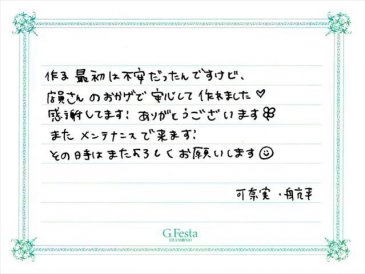 作る最初は不安だったんですけど、
店員さんのおかげで安心して作れました♡
感謝してます! ありがとうございます
またメンテナンスで来ます!
その時はまたよろしくお願いします☺
可奈実・
G.Festa